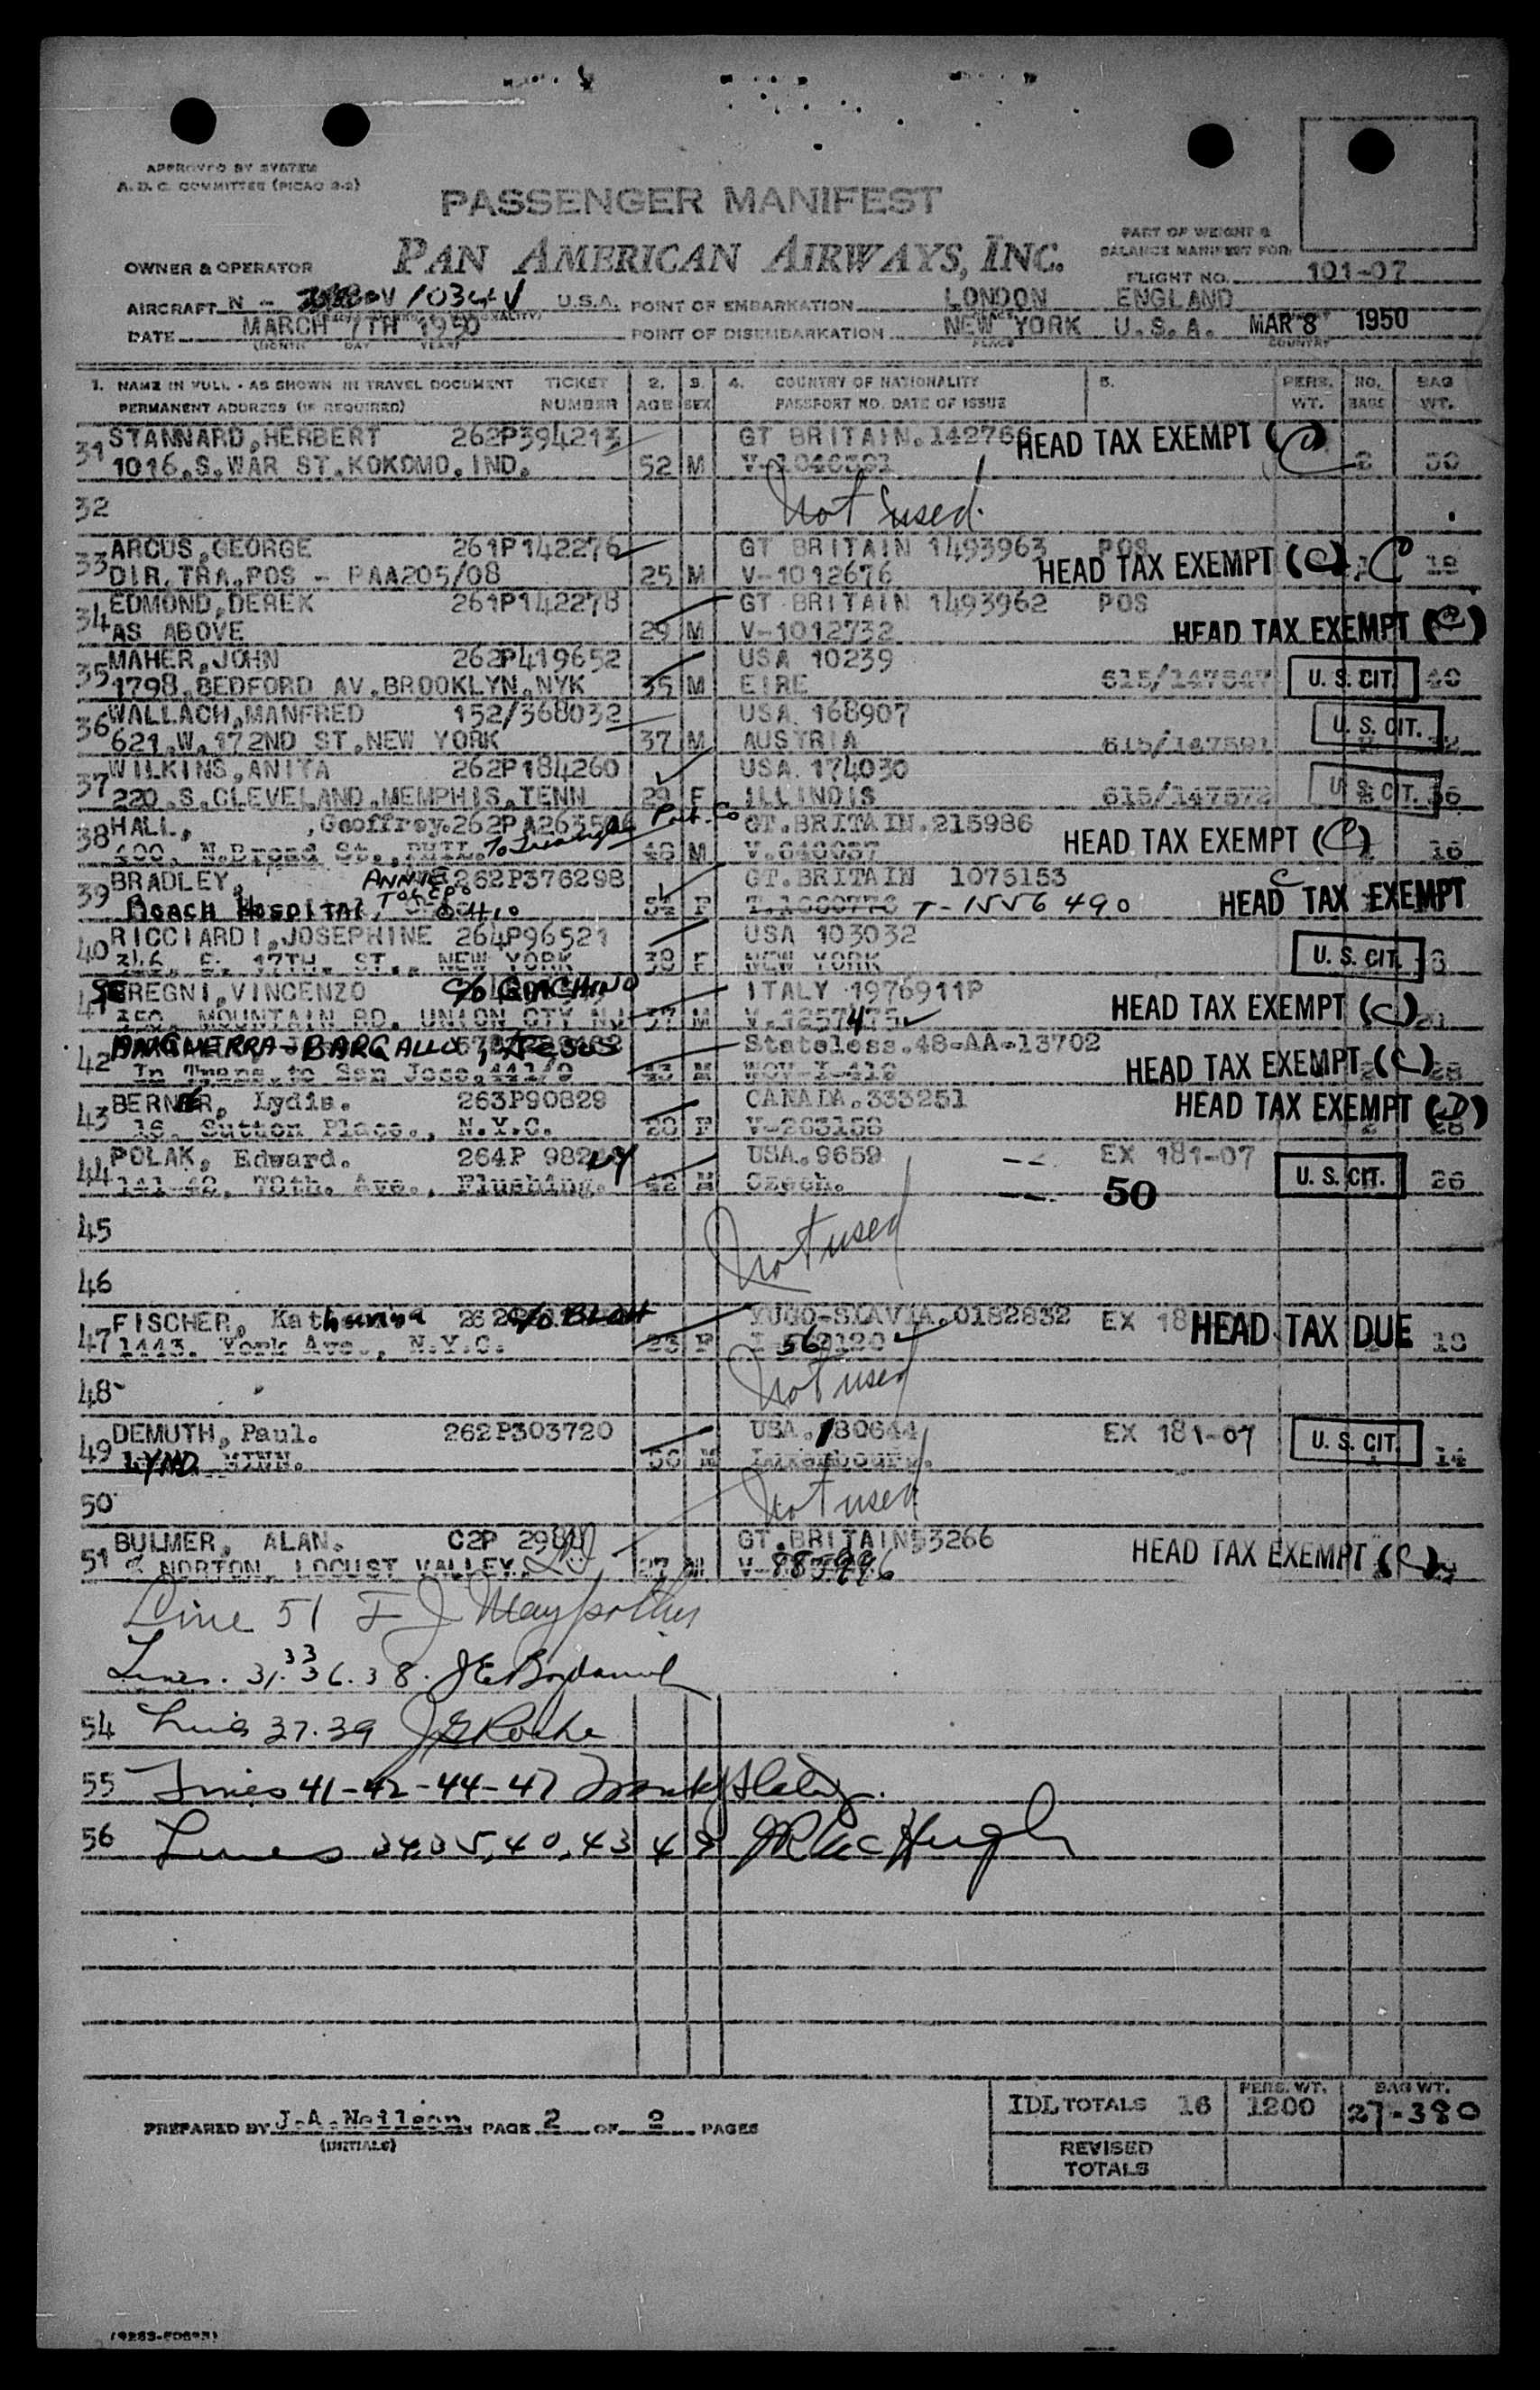 APPROVED BY SYSTEM
A. D. C. COMMITTEE (PICAO 2-2)
PASSENGER MANIFEST
PAN AMERICAN AIRWAYS, INC.
PART OF WEIGHT &
BALANCE MANIFEST FOR
OWNER & OPERATOR
FLIGHT NO. 101-07
AIRCRAFT N - 1034V U.S.A. POINT OF EMBARKATION LONDON ENGLAND
DATE MARCH 7TH 1950 POINT OF DISEMBARKATION NEW YORK U.S.A. MAR 8 1950
(MONTH DAY YEAR) PLACE COUNTRY
1. NAME IN FULL - AS SHOWN IN TRAVEL DOCUMENT TICKET 2. 3. 4. COUNTRY OF NATIONALITY 5. PERS. NO. BAG
PERMANENT ADDRESS (IF REQUIRED) NUMBER AGE SEX PASSPORT NO. DATE OF ISSUE WT. BAGS WT.
31 STANNARD, HERBERT 262P394213 GT BRITAIN. 142766 HEAD TAX EXEMPT (C)
1016.S.WAR ST.KOKOMO.IND. 52 M 2 50
32 Not used
33 ARCUS, GEORGE 261P142276 GT BRITAIN 1493963 POS
DIR.TRA.POS - PAA205/08 25 M V-1012676 HEAD TAX EXEMPT (C) C 19
34 EDMOND, DEREK 261P142278 GT BRITAIN 1493962 POS
AS ABOVE 29 M V-1012732 HEAD TAX EXEMPT (C)
35 MAHER, JOHN 262P419652 USA 10239
1798.BEDFORD AV.BROOKLYN.NYK 35 M EIRE 615/147547 U. S. CIT. 40
36 WALLACH, MANFRED 152/368032 USA. 168907
621.W.172ND ST.NEW YORK 37 M AUSTRIA 615/147591 U. S. CIT.
37 WILKINS, ANITA 262P184260 USA. 174030
220.S.CLEVELAND.MEMPHIS.TENN 29 F ILLINOIS 615/147572 U. S. CIT. 36
38 HALL, Geoffrey. 262PA26350 GT.BRITAIN. 215986
400. N.Broad St., PHIL. 48 M V.640037 HEAD TAX EXEMPT (C) 16
39 BRADLEY, ANNIE 262P376298 GT.BRITAIN 1075153
Roach Hospital, TOLEDO OHIO 54 F T-1556490 HEAD TAX EXEMPT C
40 RICCIARDI, JOSEPHINE 264P96521 USA 103032
346. E. 17TH. ST., NEW YORK 38 F NEW YORK U. S. CIT.
41 SEREGNI, VINCENZO C/O GIACHINO ITALY 1976911P
150. MOUNTAIN RD. UNION CTY NJ 37 M V.1257475 HEAD TAX EXEMPT (C) 21
42 BARGALLO, JESUS Stateless. 48-AA-13702
In Trans. to San Jose. 441/9 43 M WOV-I-419 HEAD TAX EXEMPT (C) 28
43 BERNER, Lydia. 263P90829 CANADA. 333251 HEAD TAX EXEMPT (D)
16. Sutton Place., N.Y.C. 20 F V-263156 28
44 POLAK, Edward. 264P 982 USA. 9659 EX 181-07
141-42, 78th. Ave., Flushing. NY 42 M Czech. 50 U. S. CIT. 26
45
Not used
46
47 FISCHER, Katharina C/O BLOH YUGO-SLAVIA. 0182832 EX 18 HEAD TAX DUE
1443. York Ave., N.Y.C. 23 F 18
48 Not used
49 DEMUTH, Paul. 262P303720 USA. 180644 EX 181-07 U. S. CIT.
LYND. MINN. 56 M Luxembourg. 14
50 Not used
51 BULMER, ALAN. C2P GT.BRITAIN 53266
% NORTON. LOCUST VALLEY. LI 27 M V-885996 HEAD TAX EXEMPT (R)
Line 51 F J
Lines. 31. 33 36. 38.
54 Lines 37. 39 J G Roche
55 Lines 41-42-44-47
56 Lines 34 35, 40, 43 49
IDL TOTALS 16 PERS. WT. 1200 BAG WT. 27-380
PREPARED BY J.A.Neilson. PAGE 2 OF 2 PAGES
(INITIALS)
REVISED
TOTALS